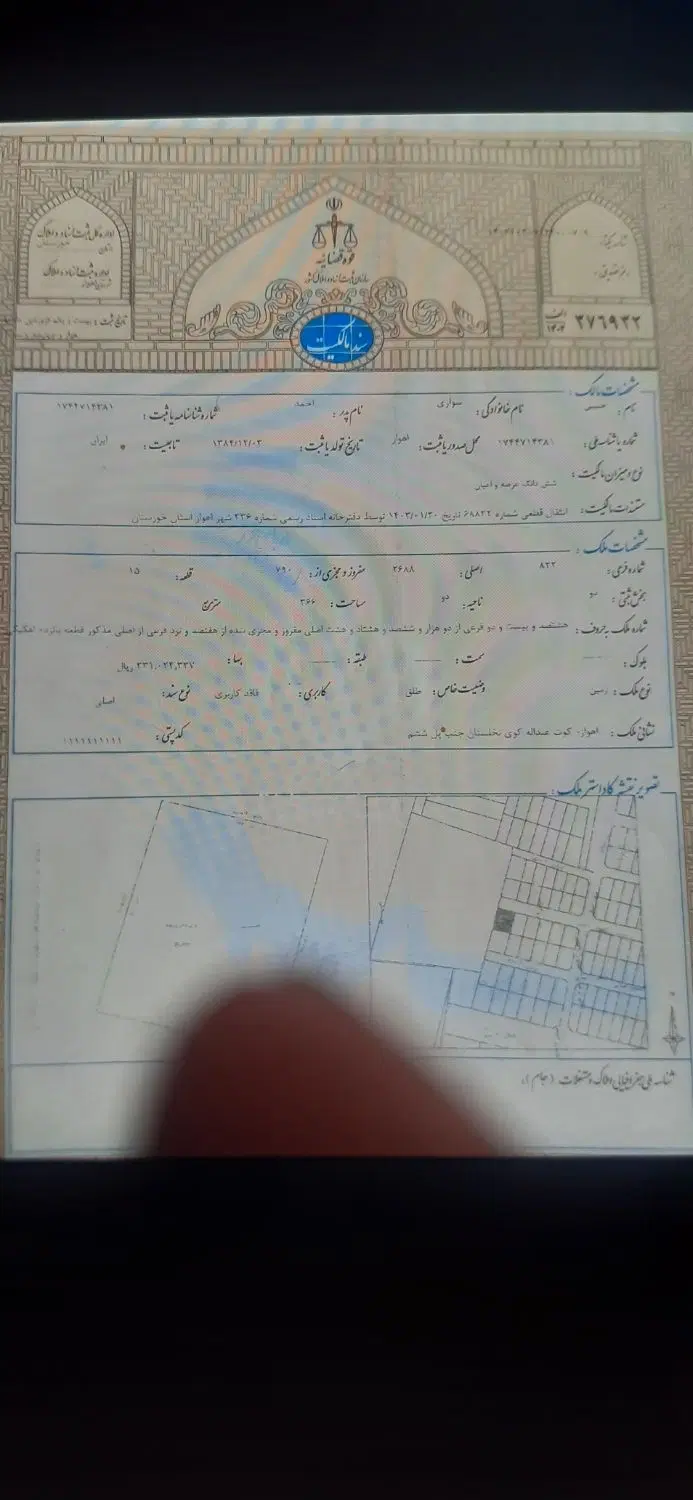 قوه قضائیه
سازمان ثبت اسناد و املاک کشور
اداره کل ثبت اسناد و املاک
استان خوزستان
اداره ثبت اسناد و املاک
شناسه یکتا:
رمز تصدیق:
سند مالکیت
الف ۱۴۰۲ ۳۷۶۹۳۲
تاریخ ثبت: بیست و
مشخصات مالک:
نام: نام خانوادگی: سواری نام پدر: احمد شماره شناسنامه یا ثبت: ۱۷۴۴۷۱۴۳۸۱
شماره یا شناسه ملی: ۱۷۴۴۷۱۴۳۸۱ محل صدور یا ثبت: اهواز تاریخ تولد یا ثبت: ۱۳۸۴/۱۲/۰۳ تابعیت: ایران
نوع و میزان مالکیت: شش دانگ عرصه و اعیان
مستندات مالکیت: انتقال قطعی شماره ۶۸۸۲۲ تاریخ ۱۴۰۳/۰۱/۳۰ توسط دفترخانه اسناد رسمی شماره ۲۳۶ شهر اهواز استان خوزستان
مشخصات ملک:
شماره فرعی: ۸۲۲ اصلی: ۲۶۸۸ مفروز و مجزی از: ۷۹۰ قطعه: ۱۵
بخش ثبتی: دو ناحیه: دو مساحت: ۳۶۶ مترمربع
شماره ملک به حروف: هشتصد و بیست و دو فرعی از دو هزار و ششصد و هشتاد و هشت اصلی مفروز و مجزی شده از هفتصد و نود فرعی از اصلی مذکور قطعه پانزده تفکیکی
بلوک: سمت: طبقه: بها: ۲۳۱,۰۲۴,۳۳۷ ریال
نوع ملک: زمین وضعیت خاص: طلق کاربری: فاقد کاربری نوع سند: اصلی
نشانی ملک: اهواز- کوت عبداله کوی نخلستان جنب پل ششم کدپستی: ۱۱۱۱۱۱۱۱۱۱
تصویر نقشه کاداستر ملک:
شناسه ملی جغرافیایی املاک و مستغلات (جام):